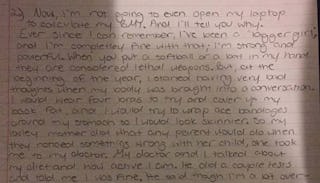 22) Now, I'm not going to even open my laptop
to calculate my BMI. And I'll tell you why.
Ever since I can remember, I've been a "bigger girl",
and I'm completely fine with that; I'm strong and
powerful. When you put a softball or a bat in my hand,
they are considered lethal weapons. But, at the
beginning of the year, I started having very bad
thoughts when my body was brought into a conversation.
I would wear four bras to try and cover up my
back fat, and I would try to wrap ace bandages
around my stomach so I would look skinnier. So my
lovely mother did what any parent would do when
they noticed something wrong with their child, she took
me to my doctor. My doctor and I talked about
my diet and how active I am. He did a couple tests
and told me I was fine. He said though I'm a bit over-